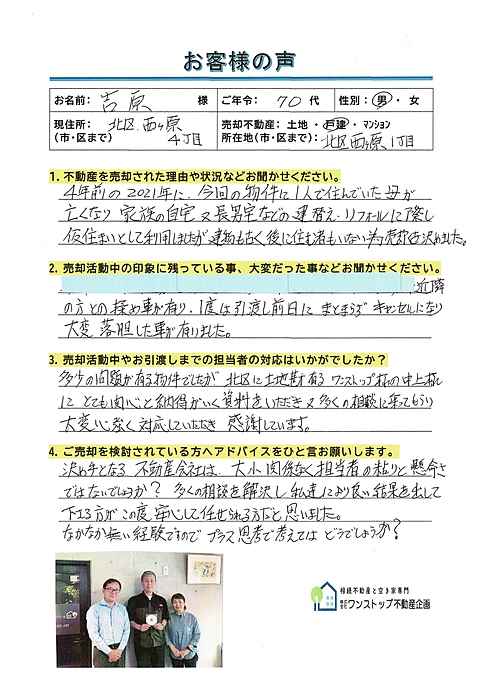 お客様の声
お名前: 吉原 様 ご年令: 70 代 性別: 男・女
現住所: 北区 西ヶ原 売却不動産: 土地・戸建・マンション
(市・区まで) 4丁目 所在地(市・区まで): 北区西ヶ原1丁目
1. 不動産を売却された理由や状況などお聞かせください。
4年前の2021年に、今回の物件に1人で住んでいた母が
亡くなり 家族の自宅又長男宅などの建替え・リフォームに際し
仮住まいとして利用しましたが建物も古く後に住む者もいない為売却を決めました。
2. 売却活動中の印象に残っている事、大変だった事などお聞かせください。
近隣
の方との揉め事が有り、1度は引渡し前日に まとまらず キャンセルになり
大変 落胆した事が有りました。
3. 売却活動中やお引渡しまでの担当者の対応はいかがでしたか?
多少の問題が有る物件でしたが 北区に土地勘有る ワンストップ様の中上様
に とても関心と納得がいく資料をいただき又多くの相談に乗ってもらい
大変心強く対応していただき 感謝しています。
4. ご売却を検討されている方へアドバイスをひと言お願いします。
決め手となる 不動産会社は、大小関係なく担当者の粘りと懸命さ
ではないでしょうか? 多くの相談を解決し私達により良い結果を出して
下さる方がこの度 安心して任せられる方だと思いました。
なかなか無い経験ですので プラス思考で考えては どうでしょうか?
相続不動産と空き家専門
株式会社 ワンストップ不動産企画